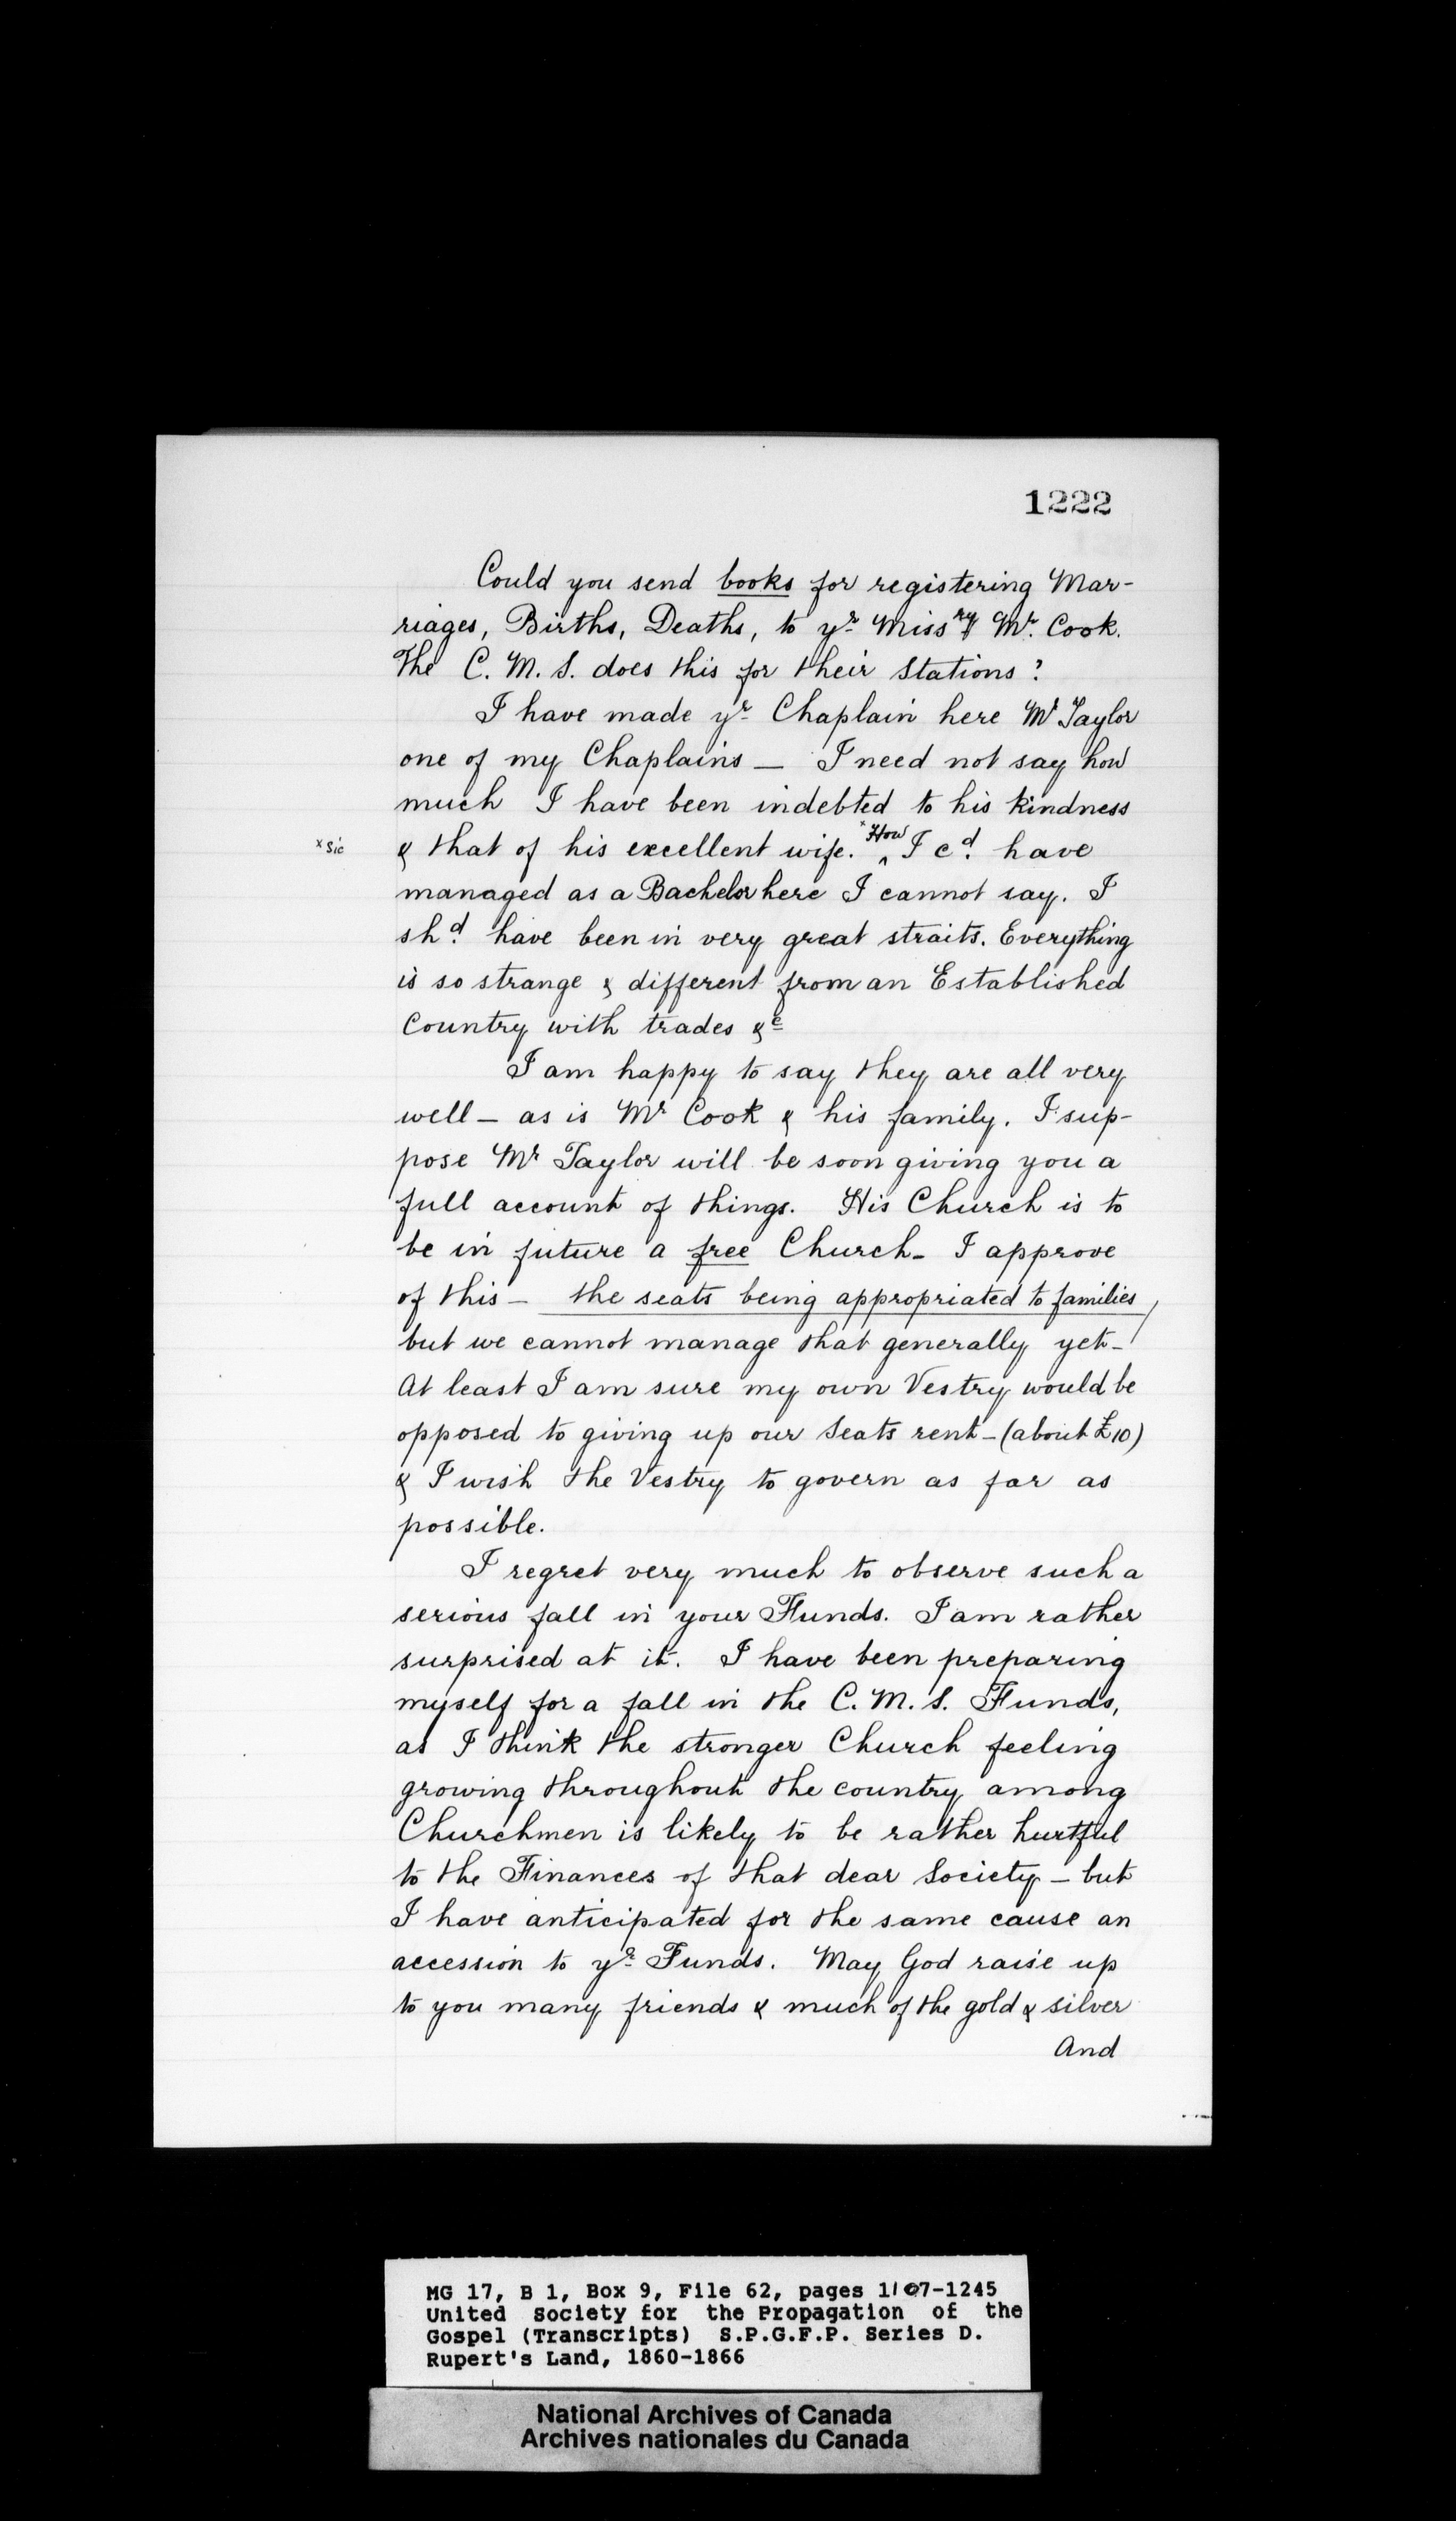 1222
Could you send books for registering Mar-
riages, Births, Deaths, to yr Missry Mr. Cook.
The C. M. S. does this for their Stations?
I have made yr Chaplain here Mr Taylor
one of my Chaplains — I need not say how
much I have been indebted to his kindness
x sic
& that of his excellent wife. x How ^ I cd. have
managed as a Bachelor here I cannot say. I
shd. have been in very great straits. Everything
is so strange & different from an Established
Country with trades &c
I am happy to say they are all very
well — as is Mr Cook & his family. I sup-
pose Mr Taylor will be soon giving you a
full account of things. His Church is to
be in future a free Church — I approve
of this — the seats being appropriated to families /
but we cannot manage that generally yet —
At least I am sure my own Vestry would be
opposed to giving up our Seats rent — (about £10)
& I wish the Vestry to govern as far as
possible.
I regret very much to observe such a
serious fall in your Funds. I am rather
surprised at it. I have been preparing
myself for a fall in the C. M. S. Funds,
as I think the stronger Church feeling
growing throughout the country among
Churchmen is likely to be rather hurtful
to the Finances of that dear Society — but
I have anticipated for the same cause an
accession to yr Funds. May God raise up
to you many friends & much of the gold & silver
And
MG 17, B 1, Box 9, File 62, pages 1107-1245
United Society for the Propagation of the
Gospel (Transcripts) S.P.G.F.P. Series D.
Rupert's Land, 1860-1866
National Archives of Canada
Archives nationales du Canada